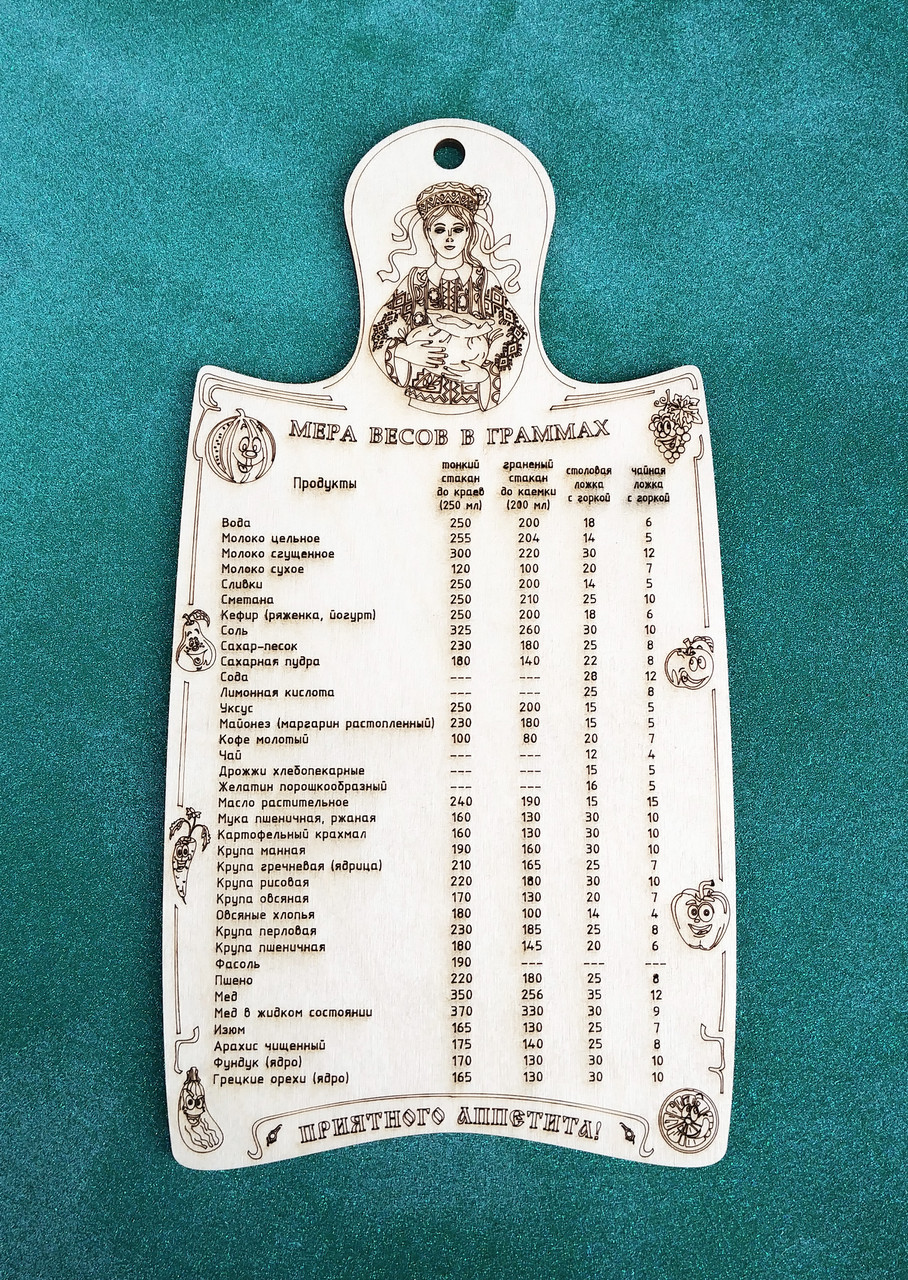 МЕРА ВЕСОВ В ГРАММАХ
Продукты тонкий стакан до краев (250 мл) граненый стакан до каемки (200 мл) столовая ложка с горкой чайная ложка с горкой
Вода 250 200 18 6
Молоко цельное 255 204 14 5
Молоко сгущенное 300 220 30 12
Молоко сухое 120 100 20 7
Сливки 250 200 14 5
Сметана 250 210 25 10
Кефир (ряженка, йогурт) 250 200 18 6
Соль 325 260 30 10
Сахар-песок 230 180 25 8
Сахарная пудра 180 140 22 8
Сода --- --- 28 12
Лимонная кислота --- --- 25 8
Уксус 250 200 15 5
Майонез (маргарин растопленный) 230 180 15 5
Кофе молотый 100 80 20 7
Чай --- --- 12 4
Дрожжи хлебопекарные --- --- 15 5
Желатин порошкообразный --- --- 16 5
Масло растительное 240 190 15 15
Мука пшеничная, ржаная 160 130 30 10
Картофельный крахмал 160 130 30 10
Крупа манная 190 160 30 10
Крупа гречневая (ядрица) 210 165 25 7
Крупа рисовая 220 180 30 10
Крупа овсяная 170 130 20 7
Овсяные хлопья 180 100 14 4
Крупа перловая 230 185 25 8
Крупа пшеничная 180 145 20 6
Фасоль 190 --- --- ---
Пшено 220 180 25 8
Мед 350 256 35 12
Мед в жидком состоянии 370 330 30 9
Изюм 165 130 25 7
Арахис чищенный 175 140 25 8
Фундук (ядро) 170 130 30 10
Грецкие орехи (ядро) 165 130 30 10
ПРИЯТНОГО АППЕТИТА!